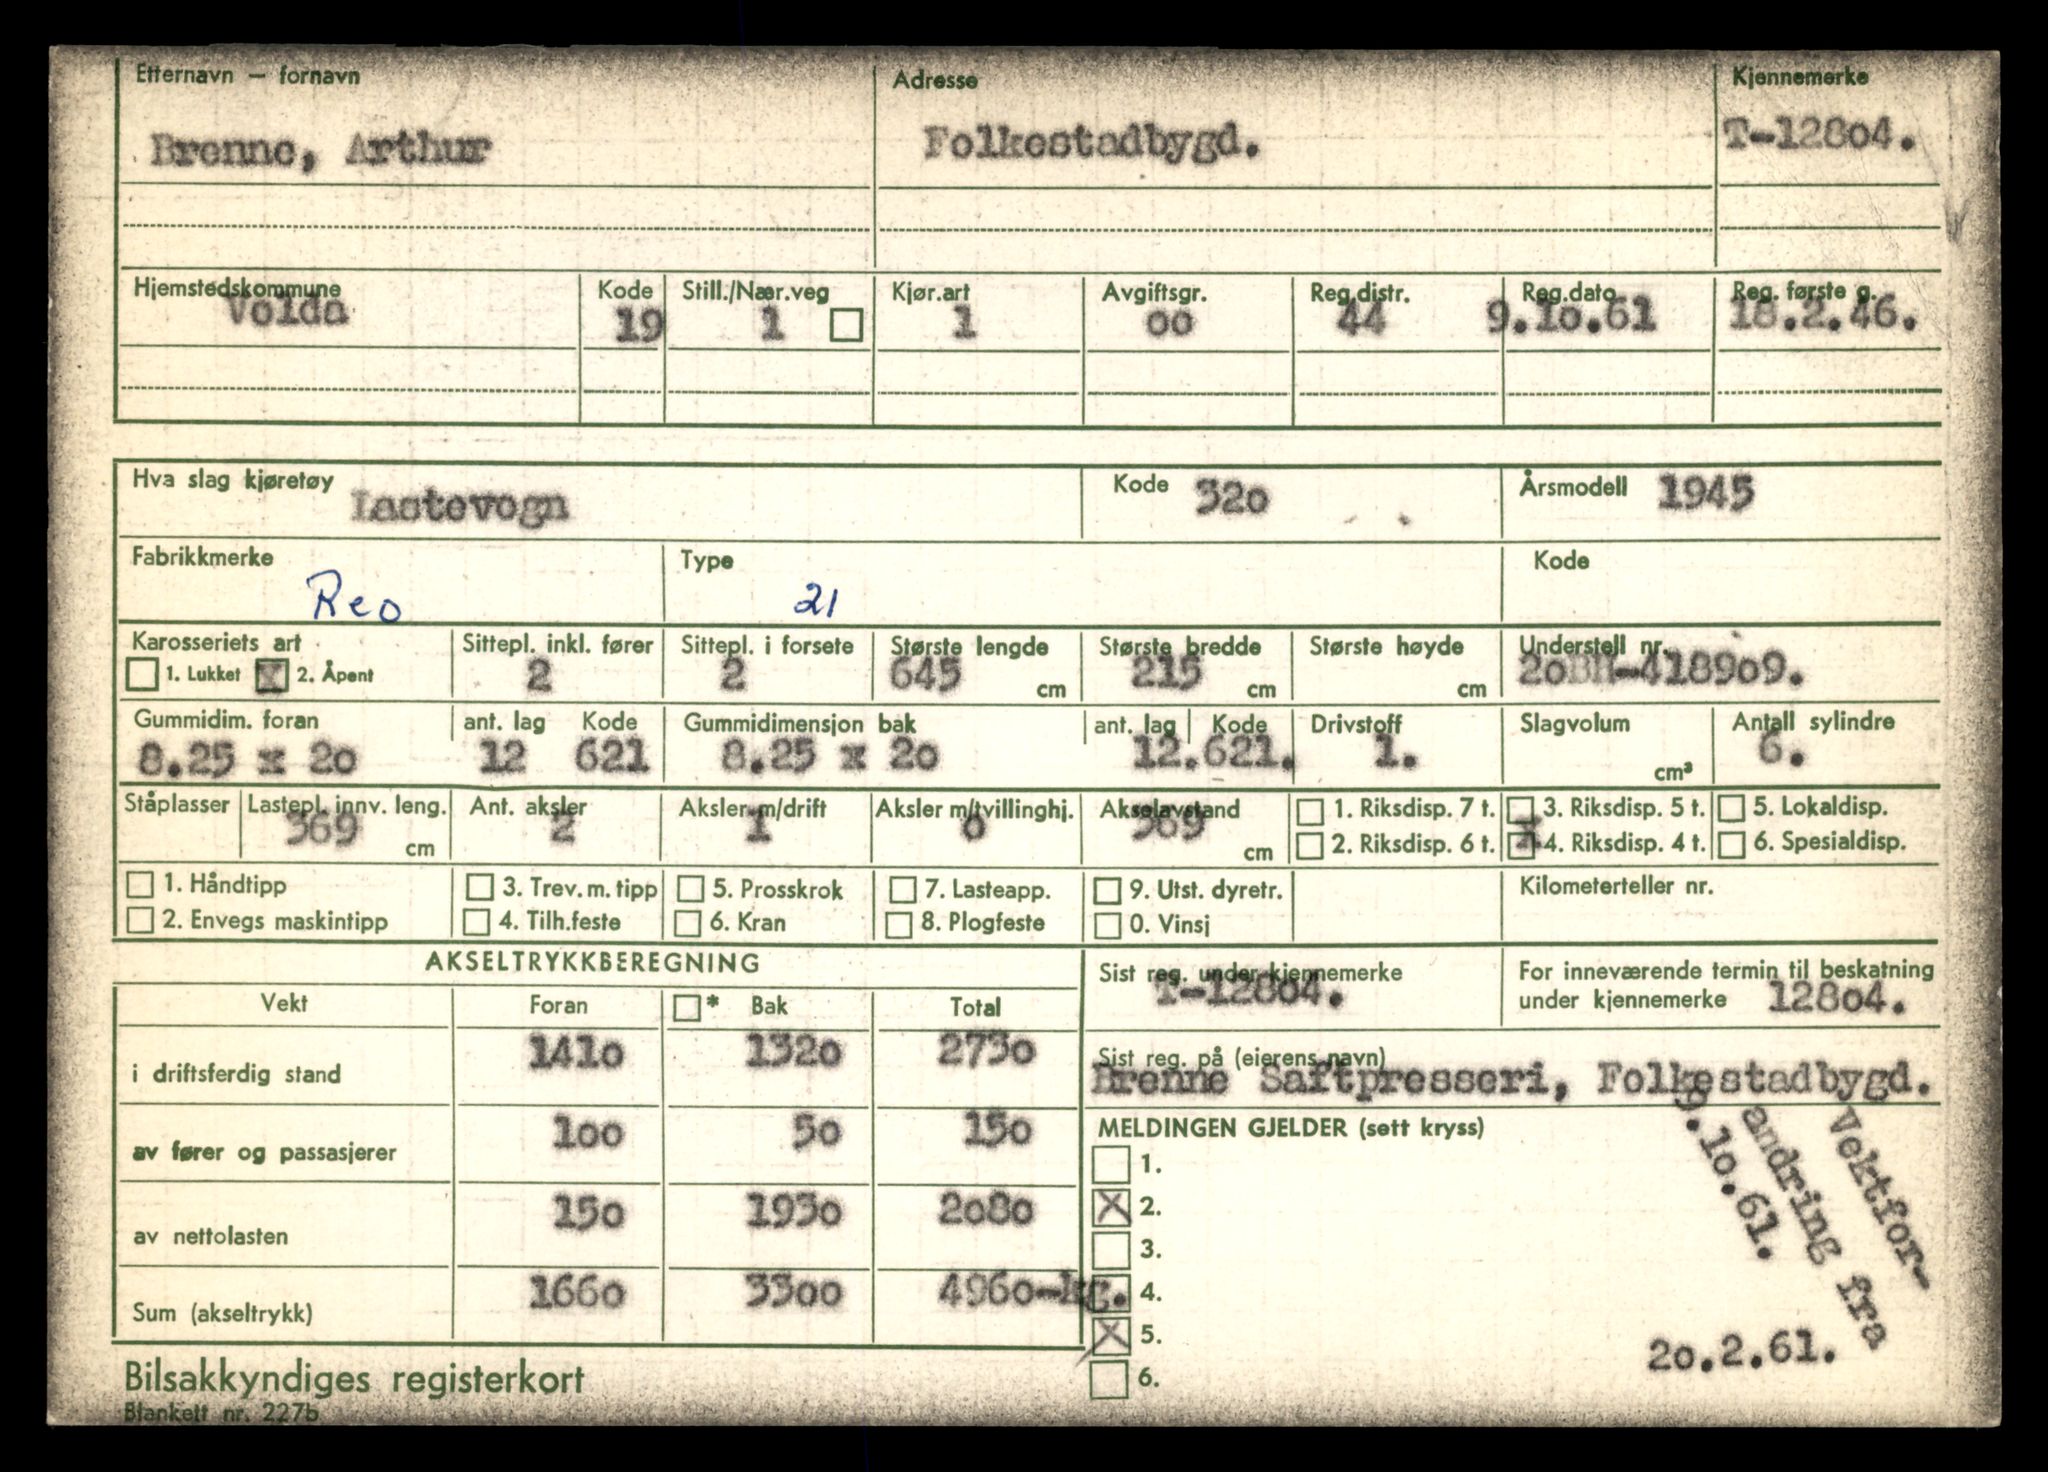 Etternavn — fornavn Adresse Kjennemerke
Brenne, Arthur Folkestadbygd. T-12804.
Hjemstedskommune Kode Still./Nær.veg Kjør.art Avgiftsgr. Reg.distr. Reg.dato Reg. første g.
Volda 19 1 1 oo 44 9.1o.61 18.2.46.
Hva slag kjøretøy Lastevogn Kode 32o Årsmodell 1945
Fabrikkmerke Type Kode
Reo 21
Karosseriets art Sittepl. inkl. fører Sittepl. i forsete Største lengde Største bredde Største høyde Understell nr.
1. Lukket X 2. Åpent 2 2 645 cm 215 cm cm 2oBH-4189o9.
Gummidim. foran ant. lag Kode Gummidimensjon bak ant. lag Kode Drivstoff Slagvolum Antall sylindre
8.25 x 2o 12 621 8.25 x 2o 12.621. 1. cm³ 6.
Ståplasser Lastepl. innv. leng. Ant. aksler Aksler m/drift Aksler m/tvillinghj. Akselavstand 1. Riksdisp. 7 t. 3. Riksdisp. 5 t. 5. Lokaldisp.
369 cm 2 1 o 369 cm 2. Riksdisp. 6 t. X 4. Riksdisp. 4 t. 6. Spesialdisp.
1. Håndtipp 3. Trev. m. tipp 5. Prosskrok 7. Lasteapp. 9. Utst. dyretr. Kilometerteller nr.
2. Envegs maskintipp 4. Tilh.feste 6. Kran 8. Plogfeste 0. Vinsj
AKSELTRYKKBEREGNING
Vekt Foran * Bak Total
i driftsferdig stand 141o 132o 273o
av fører og passasjerer 1oo 5o 15o
av nettolasten 15o 193o 2o8o
Sum (akseltrykk) 166o 33oo 496o-kg.
Sist reg. under kjennemerke
T-128o4.
For inneværende termin til beskatning
under kjennemerke 128o4.
Sist reg. på (eierens navn)
Brenne Saftpresseri, Folkestadbygd.
MELDINGEN GJELDER (sett kryss)
1.
X 2.
3.
4.
X 5.
6.
Vektfor-
andring fra
9.1o.61.
2o.2.61.
Bilsakkyndiges registerkort
Blankett nr. 227b